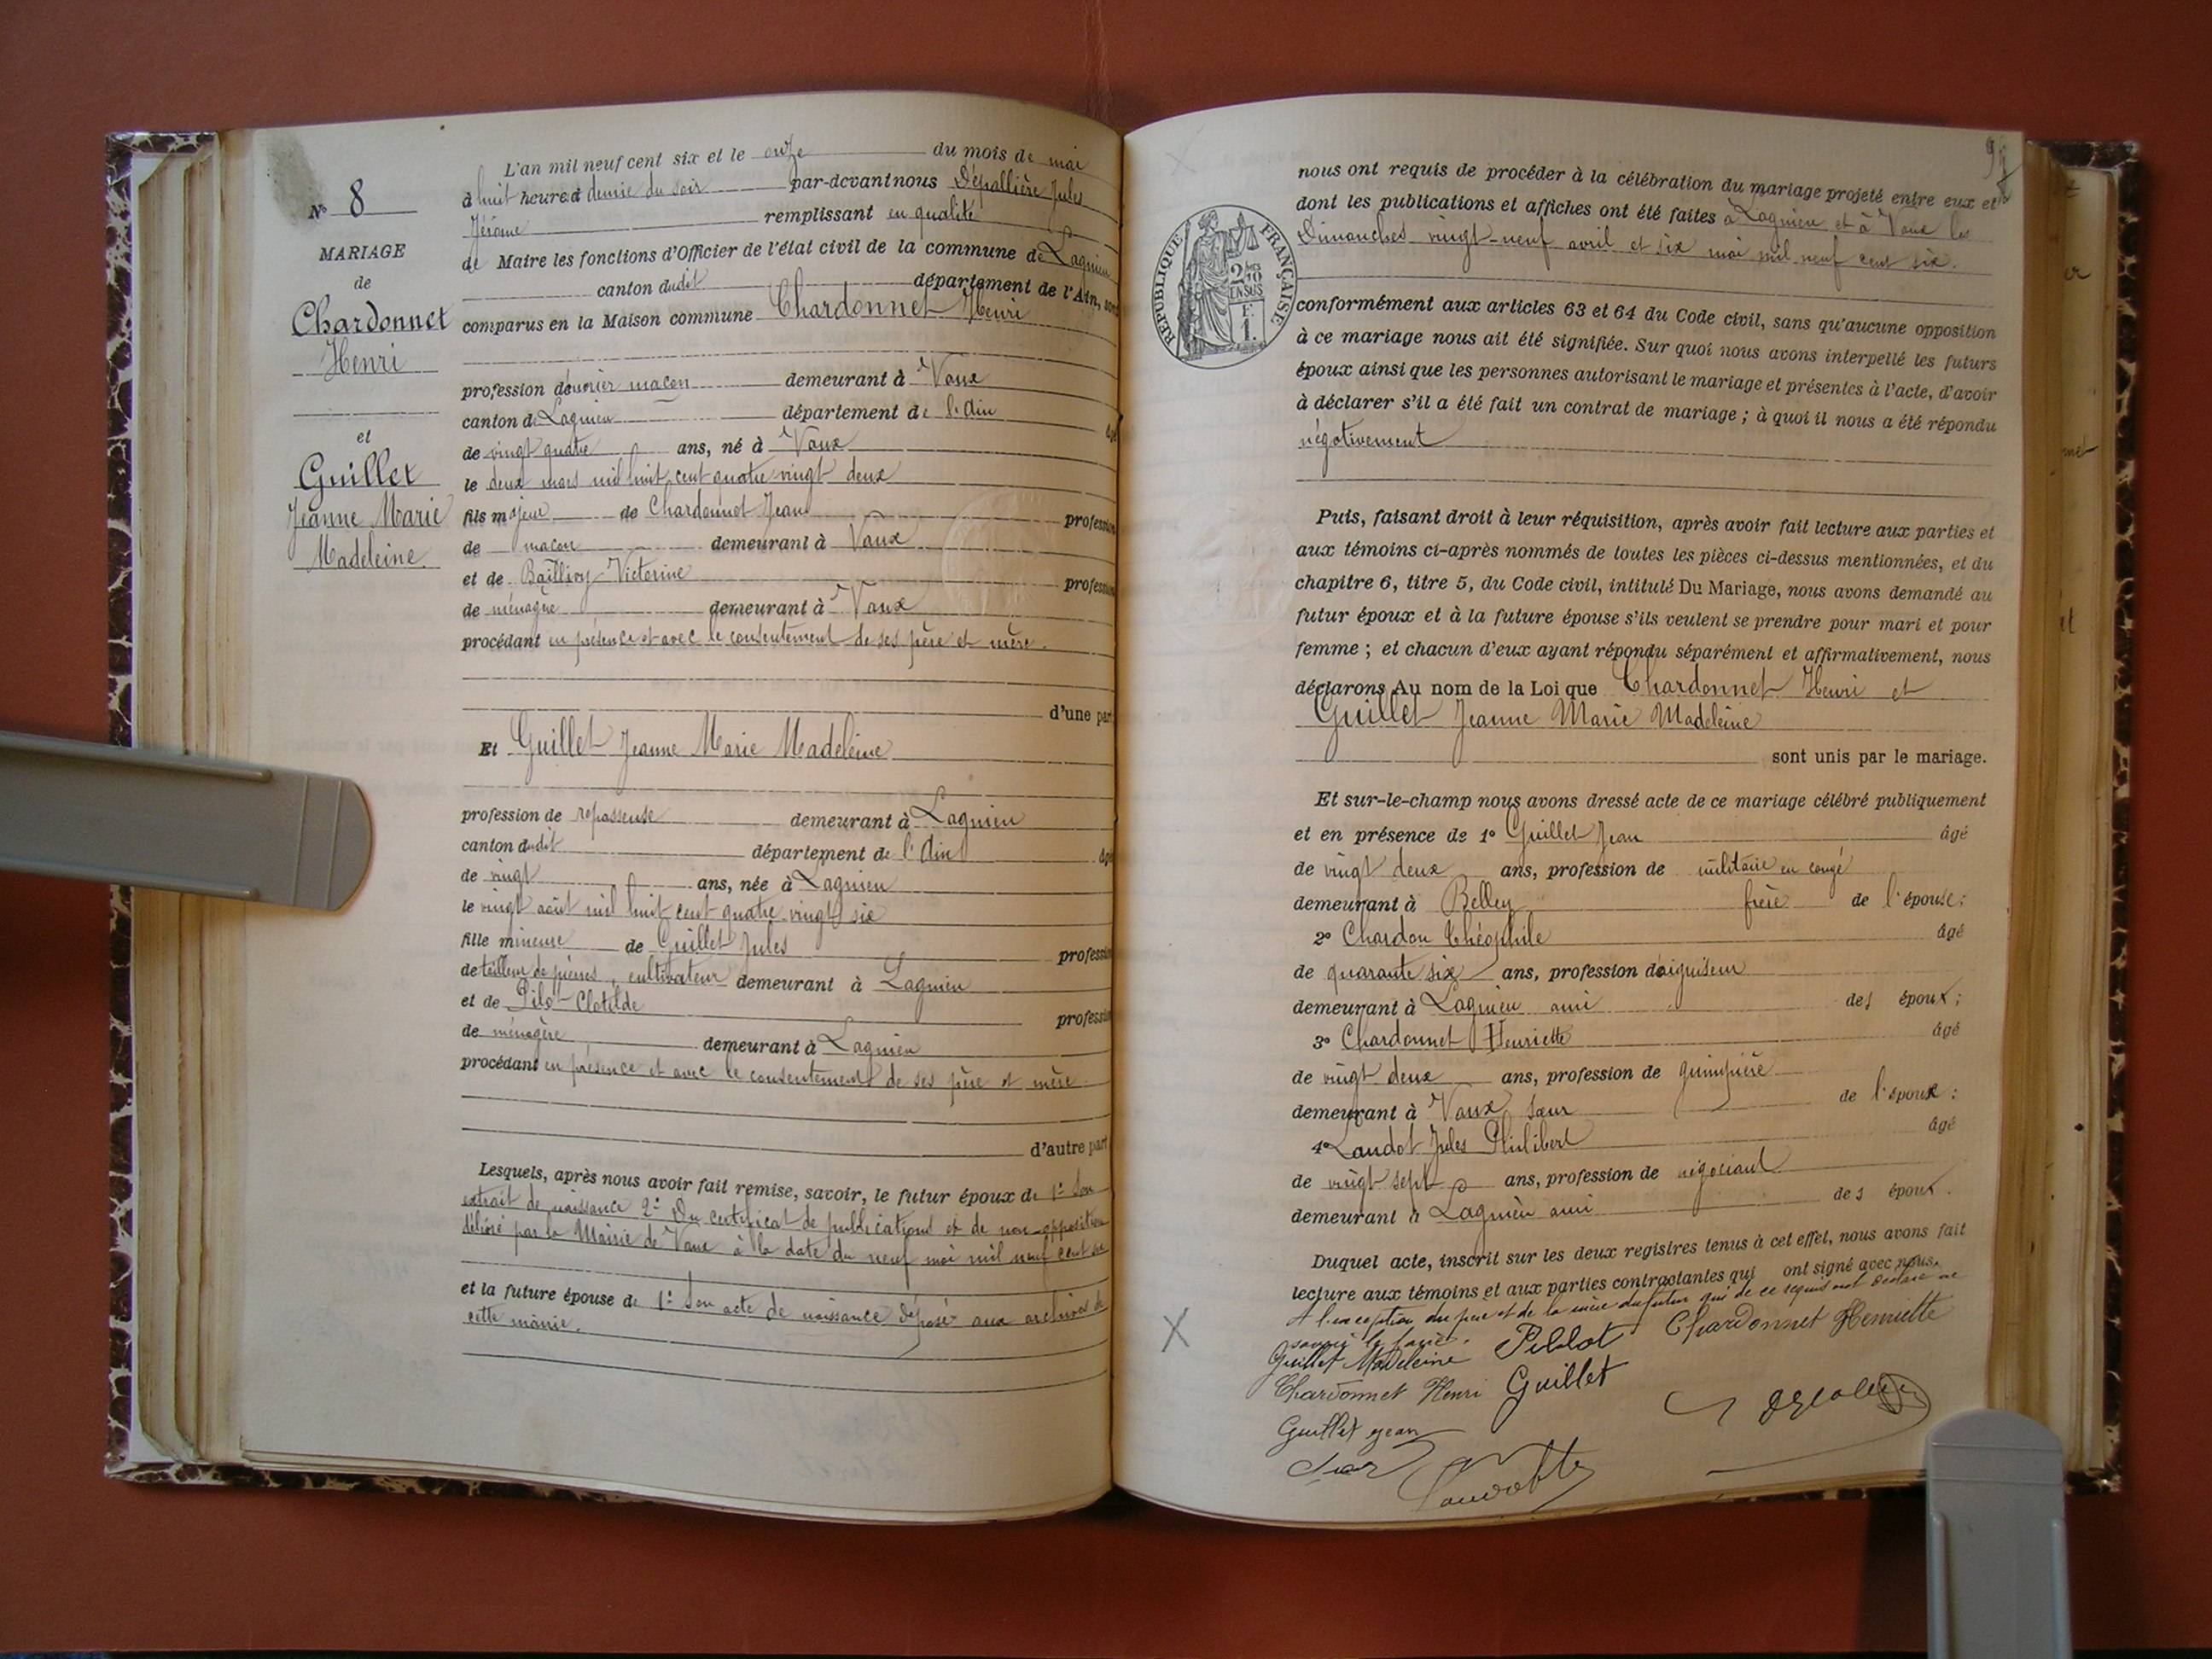 N° 8
MARIAGE
de
Chardonnet
Henri
et
Guillet
Jeanne Marie
Madeleine.
L'an mil neuf cent six et le onze du mois de mai
à huit heures et demie du soir par-devant nous Dépallière Jules
Jérôme remplissant en qualité
de Maire les fonctions d'Officier de l'état civil de la commune de Lagnieu
canton dudit département de l'Ain, sont
comparus en la Maison commune Chardonnet Henri
profession d'ouvrier maçon demeurant à Vaux
canton de Lagnieu département de l'Ain âgé
de vingt quatre ans, né à Vaux
le deux mars mil huit cent quatre vingt deux
fils majeur de Chardonnet Jean profession
de maçon demeurant à Vaux
et de Baillivy Victorine profession
de ménagère demeurant à Vaux
procédant en présence et avec le consentement de ses père et mère.
d'une part
Et Guillet Jeanne Marie Madeleine
profession de repasseuse demeurant à Lagnieu
canton dudit département de l'Ain âgé
de vingt ans, née à Lagnieu
le vingt août mil huit cent quatre vingt six
fille mineure de Guillet Jules profession
de tailleur de pierres, cultivateur demeurant à Lagnieu
et de Pilot Clotilde profession
de ménagère demeurant à Lagnieu
procédant en présence et avec le consentement de ses père et mère.
d'autre part
Lesquels, après nous avoir fait remise, savoir, le futur époux de 1° Son
extrait de naissance 2° Du certificat de publications et de non-opposition
délivré par la Mairie de Vaux à la date du neuf mai mil neuf cent six
et la future épouse de 1° Son acte de naissance déposé aux archives de
cette mairie.
RÉPUBLIQUE FRANÇAISE
2/10 EN SUS
F.
1.
nous ont requis de procéder à la célébration du mariage projeté entre eux et
dont les publications et affiches ont été faites à Lagnieu et à Vaux les
Dimanches vingt-neuf avril et six mai mil neuf cent six.
conformément aux articles 63 et 64 du Code civil, sans qu'aucune opposition
à ce mariage nous ait été signifiée. Sur quoi nous avons interpellé les futurs
époux ainsi que les personnes autorisant le mariage et présentes à l'acte, d'avoir
à déclarer s'il a été fait un contrat de mariage ; à quoi il nous a été répondu
négativement
Puis, faisant droit à leur réquisition, après avoir fait lecture aux parties et
aux témoins ci-après nommés de toutes les pièces ci-dessus mentionnées, et du
chapitre 6, titre 5, du Code civil, intitulé Du Mariage, nous avons demandé au
futur époux et à la future épouse s'ils veulent se prendre pour mari et pour
femme ; et chacun d'eux ayant répondu séparément et affirmativement, nous
déclarons Au nom de la Loi que Chardonnet Henri et
Guillet Jeanne Marie Madeleine
sont unis par le mariage.
Et sur-le-champ nous avons dressé acte de ce mariage célébré publiquement
et en présence de 1° Guillet Jean âgé
de vingt deux ans, profession de militaire en congé
demeurant à Belley frère de l'épouse ;
2° Chardon Théophile âgé
de quarante six ans, profession d'aiguiseur
demeurant à Lagnieu ami des époux ;
3° Chardonnet Henriette âgé
de vingt deux ans, profession de guimpière
demeurant à Vaux sœur de l'époux ;
4° Laudot Jules Philibert âgé
de vingt sept ans, profession de négociant
demeurant à Lagnieu ami des époux.
Duquel acte, inscrit sur les deux registres tenus à cet effet, nous avons fait
lecture aux témoins et aux parties contractantes qui ont signé avec nous.
A l'exception du père et de la mère du futur qui de ce requis ont déclaré ne
savoir le faire.
Guillet Madeleine Pillot Chardonnet Henriette
Chardonnet Henri Guillet
Guillet jean